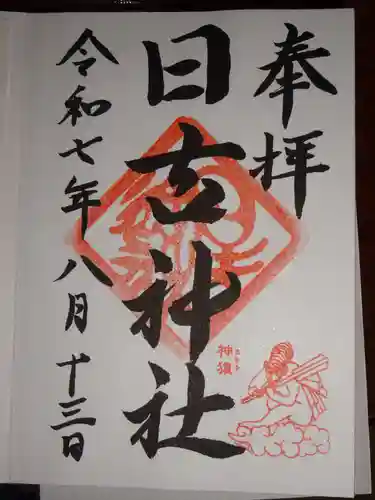 奉拝
日古神社
令和七年八月十三日
神猿